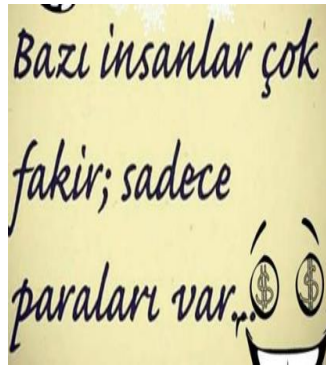 Bazı insanlar çok
fakir; sadece
paraları var...